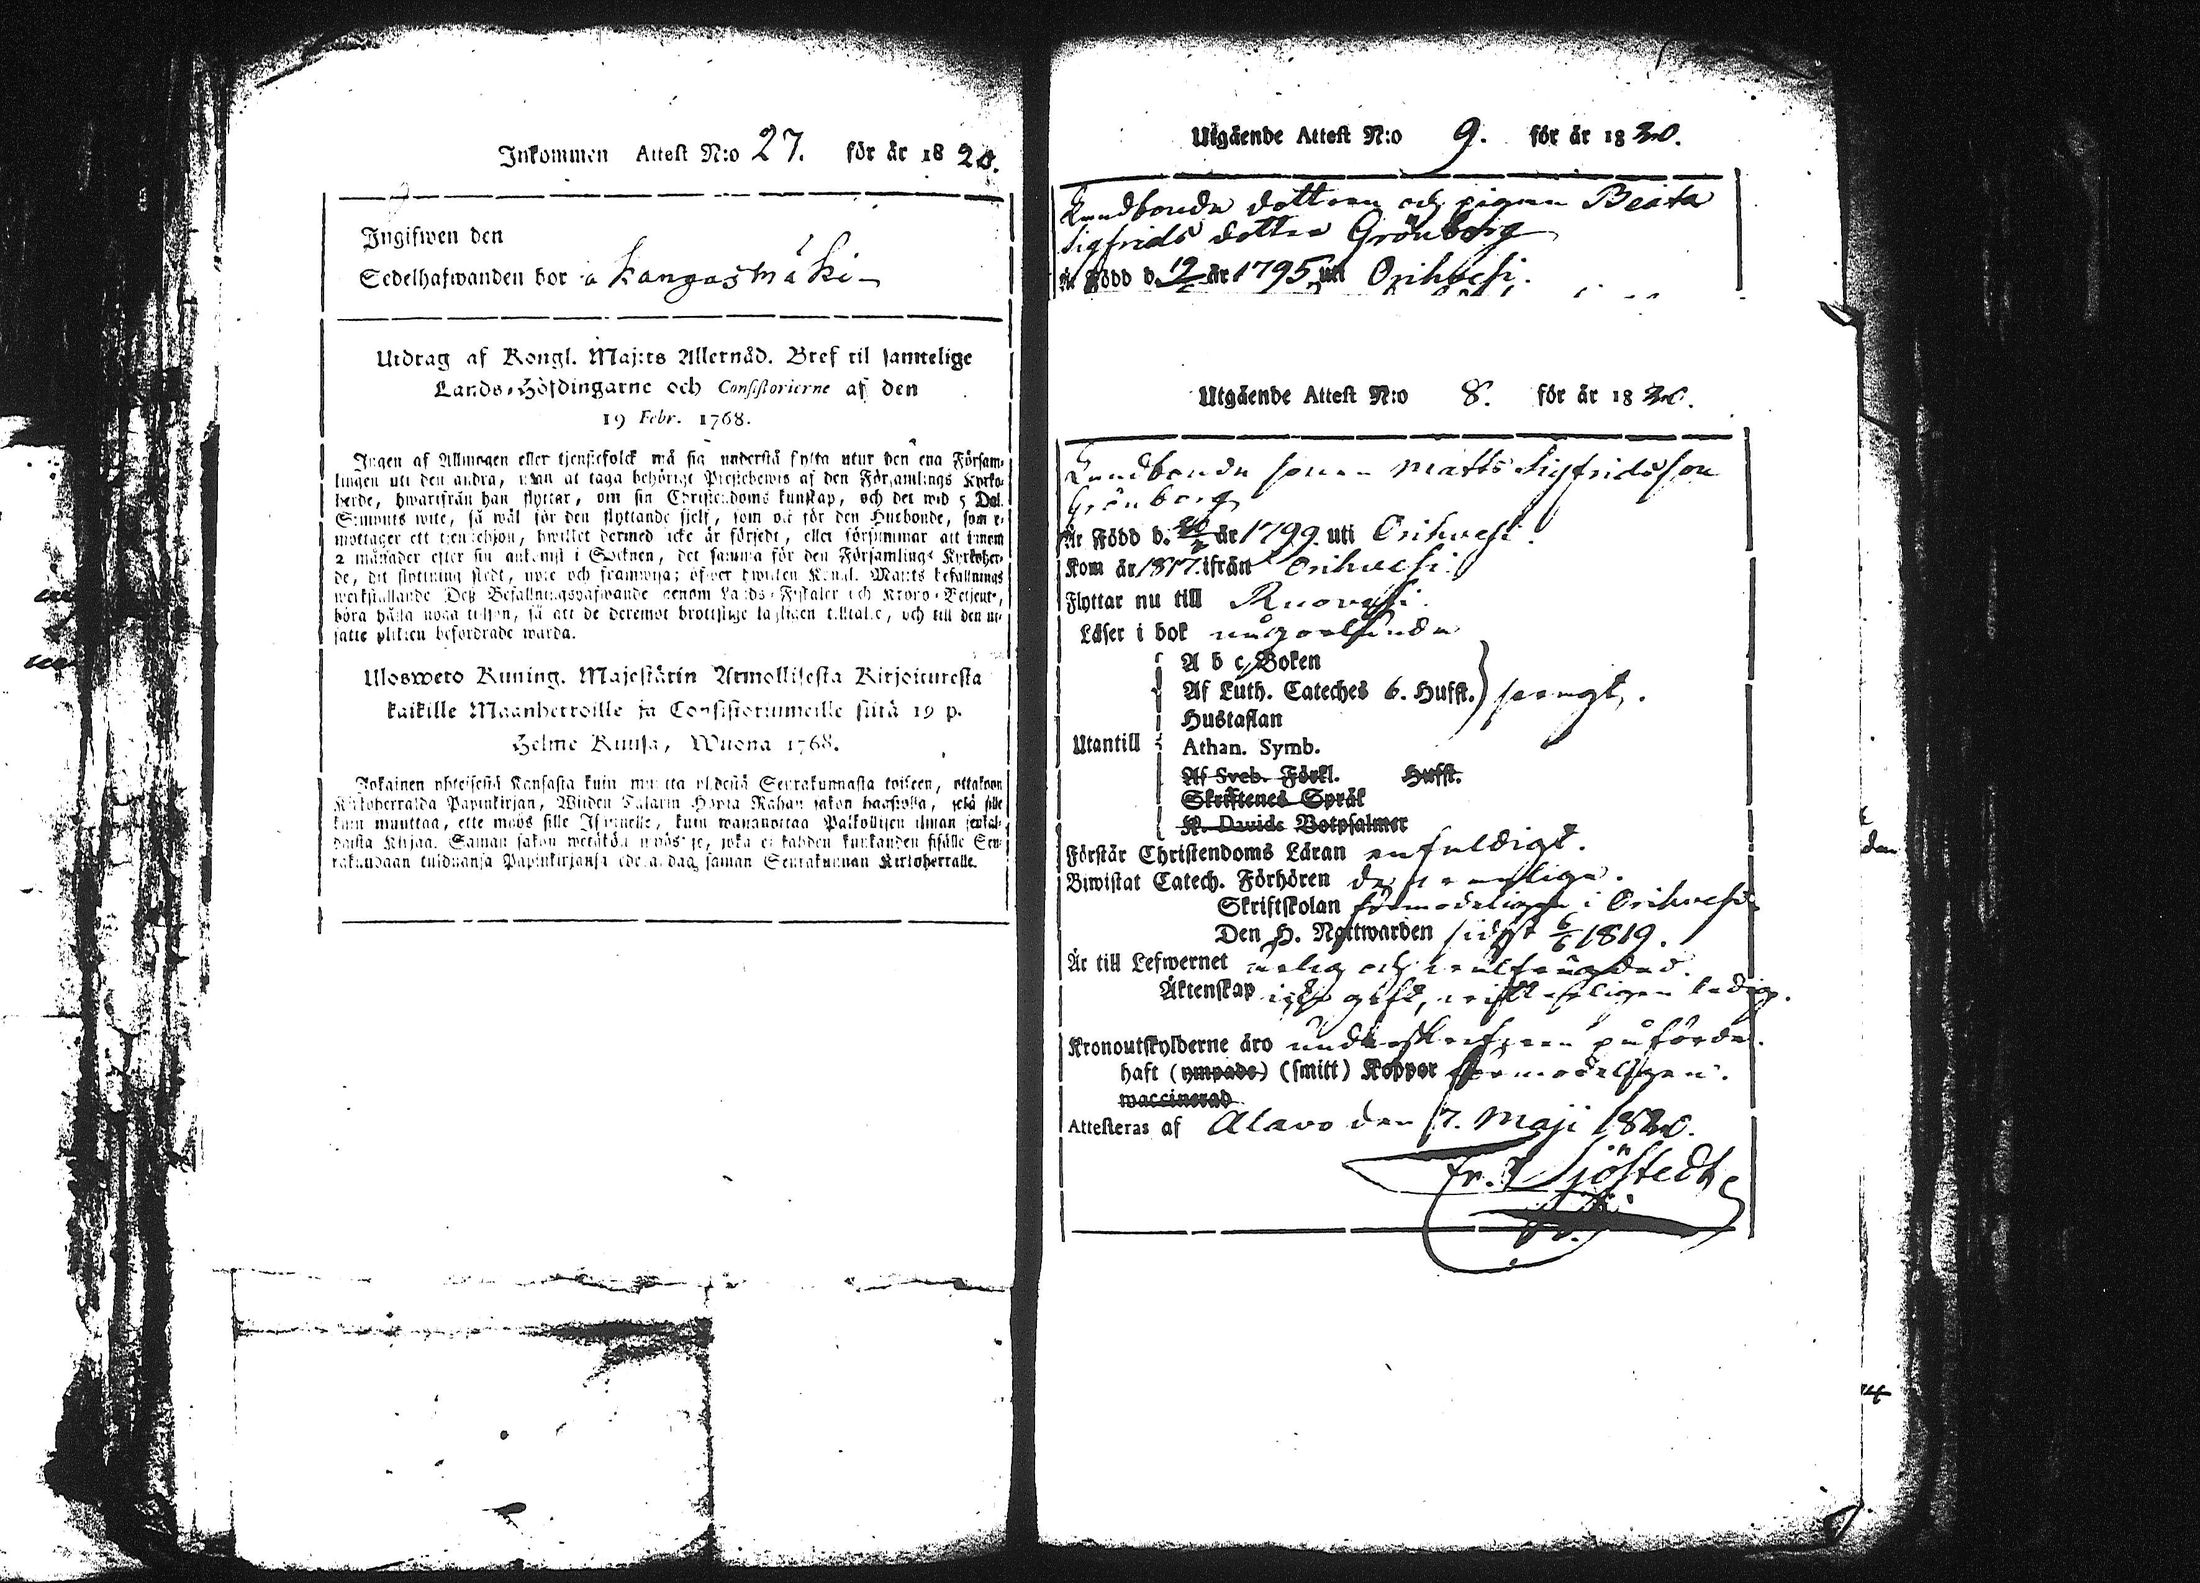 Inkommen Attest N:o 27. för år 1820.
Ingifwen den
Sedelhafwanden bor å Kangasmäki
Utdrag af Kongl. Maj:ts Allernåd. Bref til samtelige
Lands-Höfdingarne och Consistorierne af den
19 Febr. 1768.
Ingen af Allmogen eller tjenstefolck må sig understå flytta utur den ena Försam-
lingen uti den andra, utan at taga behörigt Prestebewis af den Församlings Kyrko-
herde, hwarifrån han flyttar, om sin Christendoms kunskap, och det wid 5 Dal.
Silfwermynts wite, så wäl för den flyttande sjelf, som ock för den Husbonde, som e-
mottager ett tjenstehjon, hwilket dermed icke är försedt, eller försummar att innom
2 månader efter sin ankomst i Socknen, det samma för den Församlings Kyrkoher-
de, dit flyttning skedt, upte och framwisa; öfwer hwilken Kongl. Maj:ts befallnings
werkställande Deß Befallningshafwande genom Lands-Fiskaler och Krono-Betjente,
böra hålla noga tilsyn, så att de deremot brottslige lagligen tilltalte, och till den ut-
satte plikten befordrade warda.
Ulosweto Kuning. Majestätin Armollisesta Kirjoituresta
kaikille Maanherroille ja Consistoriumeille siitä 19 p.
Helme Kuusa, Wuona 1768.
Jokainen yhteisestä Kansasta kuin muutta yhdestä Seurakunnasta toiseen, ottakoon
Kirkoherralda Papinkirjan, Wiiden Talarin Hopia Rahan sakon haastolla, sekä sille
kuin muuttaa, ette myös sille Isännelle, kuin wastanottaa Palkollisen ilman senkal-
daista Kirjaa. Saman sakon wetäköön myös se, joka ei kahden kuukauden sisälle Seu-
rakundaan tulduansa Papinkirjansa edesanda saman Seurakunnan Kirkoherralle.
Utgående Attest N:o 9. för år 1820.
Landbonde dottren och pigan Beata
Sigfrids dotter Grönborg
Är Född d. 19 år 1795 uti Orihvesi.
Utgående Attest N:o 8. för år 1820.
Landbonde sonen Matts Sigfridsson
Grönborg
Är Född d. år 1799. uti Orihvesi.
Kom år 1817. ifrån Orihvesi.
Flyttar nu till Ruovesi.
Läser i bok någorlunda
A b c Boken
Af Luth. Cateches 6. Hufst. swagt.
Hustaflan
Utantill Athan. Symb.
Af Sveb. Förkl. Hufst.
Skriftenes Språk
K. Davids Botpsalmer
Förstår Christendoms Läran enfaldigt.
Biwistat Catech. Förhören
Skriftskolan förmodeligen i Orihvesi
Den H. Nattwarden sidst 6/6 1819.
Är till Lefwernet ärlig och
Äktenskap icke gift, ledig.
Kronoutskylderne äro påförde.
haft (ympade) (smitt) Koppor förmodeligen.
waccinerad
Attesteras af Alavo den 7. Maji 1820.
Fr. J Sjöstedt